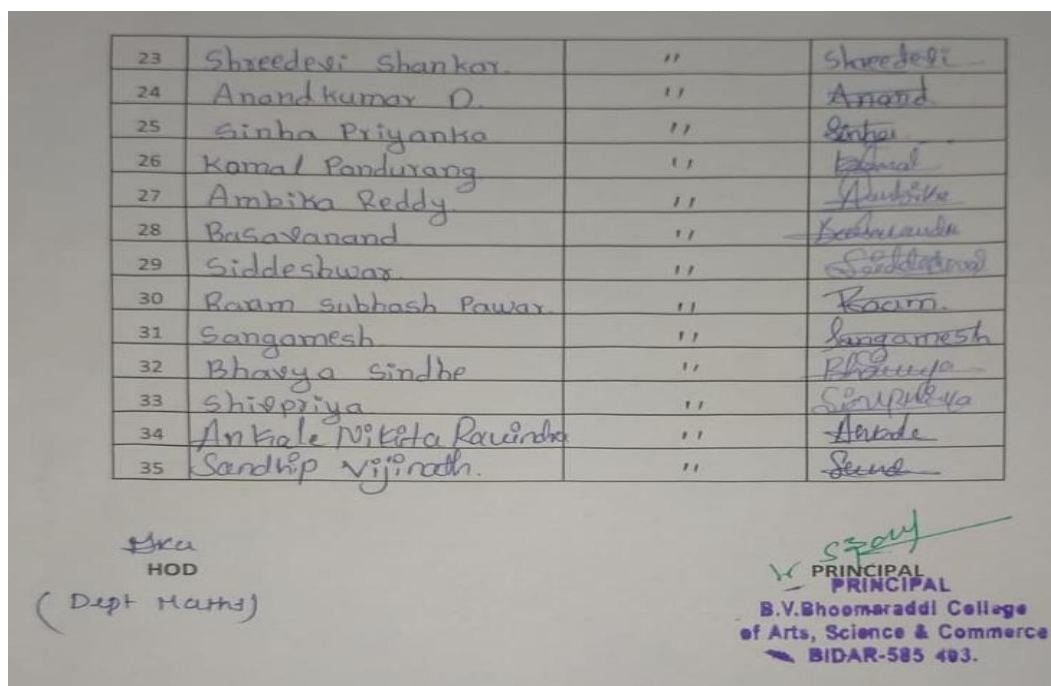 23 Shreedevi Shankar. " Shreedevi
24 Anand kumar D. " Anand
25 Sinha Priyanka " Sinha
26 Kamal Pandurang " Kamal
27 Ambika Reddy. " Ambika
28 Basavanand "
29 Siddeshwar. "
30 Raam Subhash Pawar. " Raam.
31 Sangamesh " Sangamesh
32 Bhavya Sindhe " Bhavya
33 Shivpriya "
34 Ankale Nikita Ravindra "
35 Sandhip Vijinath. "
HOD
(Dept Maths)
PRINCIPAL
PRINCIPAL
B.V.Bhoomaraddi College
of Arts, Science & Commerce
BIDAR-585 403.